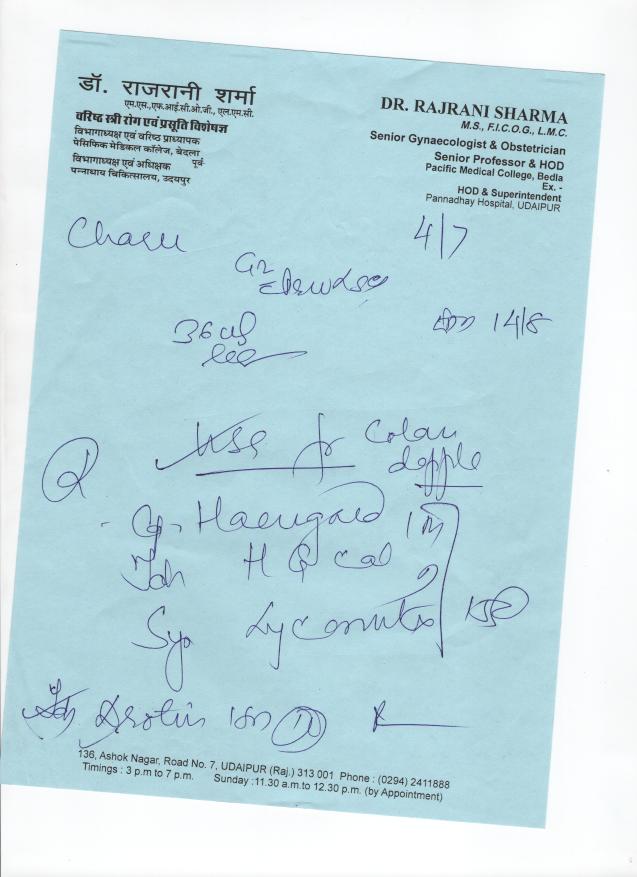 डॉ. राजरानी शर्मा
एम.एस.,एफ.आई.सी.ओ.जी., एल.एम.सी.
वरिष्ठ स्त्री रोग एवं प्रसूति विशेषज्ञ
विभागाध्यक्ष एवं वरिष्ठ प्राध्यापक
पेसिफिक मेडिकल कॉलेज, बेदला
पूर्व-
विभागाध्यक्ष एवं अधिक्षक
पन्नाधाय चिकित्सालय, उदयपुर
DR. RAJRANI SHARMA
M.S., F.I.C.O.G., L.M.C.
Senior Gynaecologist & Obstetrician
Senior Professor & HOD
Pacific Medical College, Bedla
Ex. -
HOD & Superintendent
Pannadhay Hospital, UDAIPUR
Charu
4/7
36
14/8
USG for Colour
dopple
Cap. 
Tab H Q cal
Syp
Tab Drotin
136, Ashok Nagar, Road No. 7, UDAIPUR (Raj.) 313 001 Phone : (0294) 2411888
Timings : 3 p.m to 7 p.m. Sunday :11.30 a.m.to 12.30 p.m. (by Appointment)